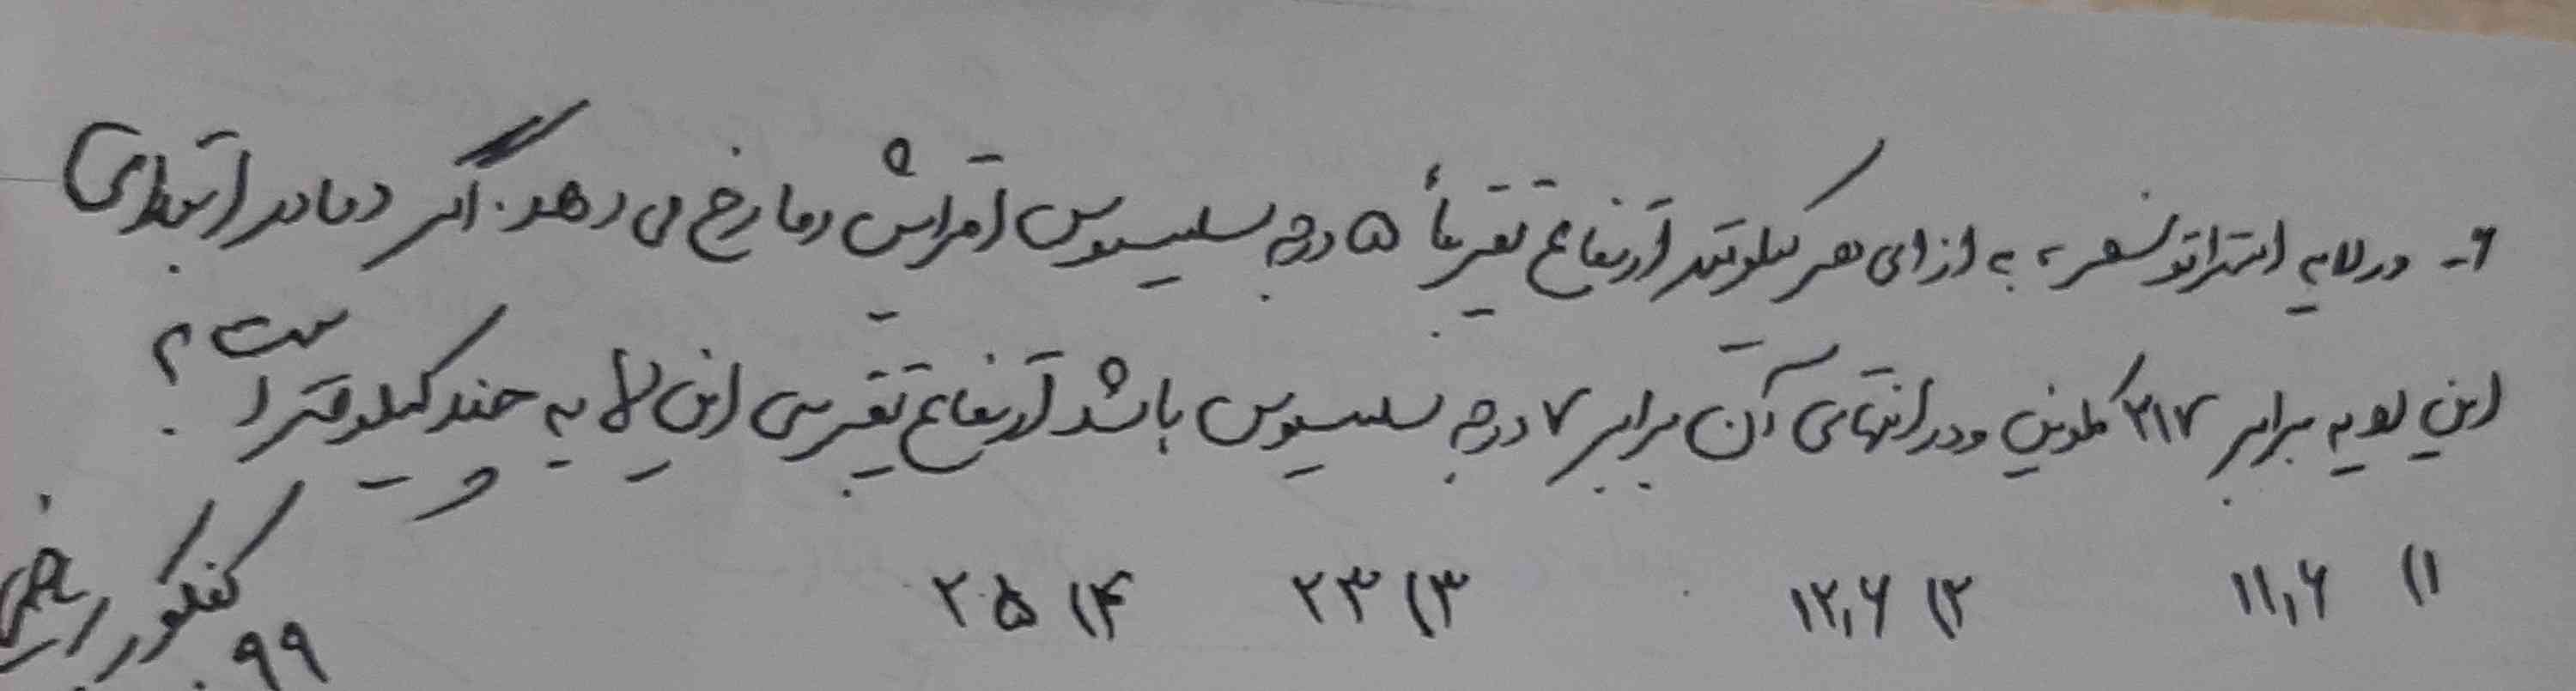 ۶- در لایه استراتوسفر، به ازای هر کیلومتر ارتفاع تقریباً ۵ درجه سلیسیوس افزایش دما رخ می دهد. اگر دما در ابتدای
این لایه برابر ۲۱۷ کلوین و در انتهای آن برابر ۷ درجه سلسیوس باشد ارتفاع تقریبی این لایه چند کیلومتر است؟
۱) ۱۱٫۶ ۲) ۱۲٫۶ ۳) ۲۳ ۴) ۲۵
کنکور ریاضی
۹۹